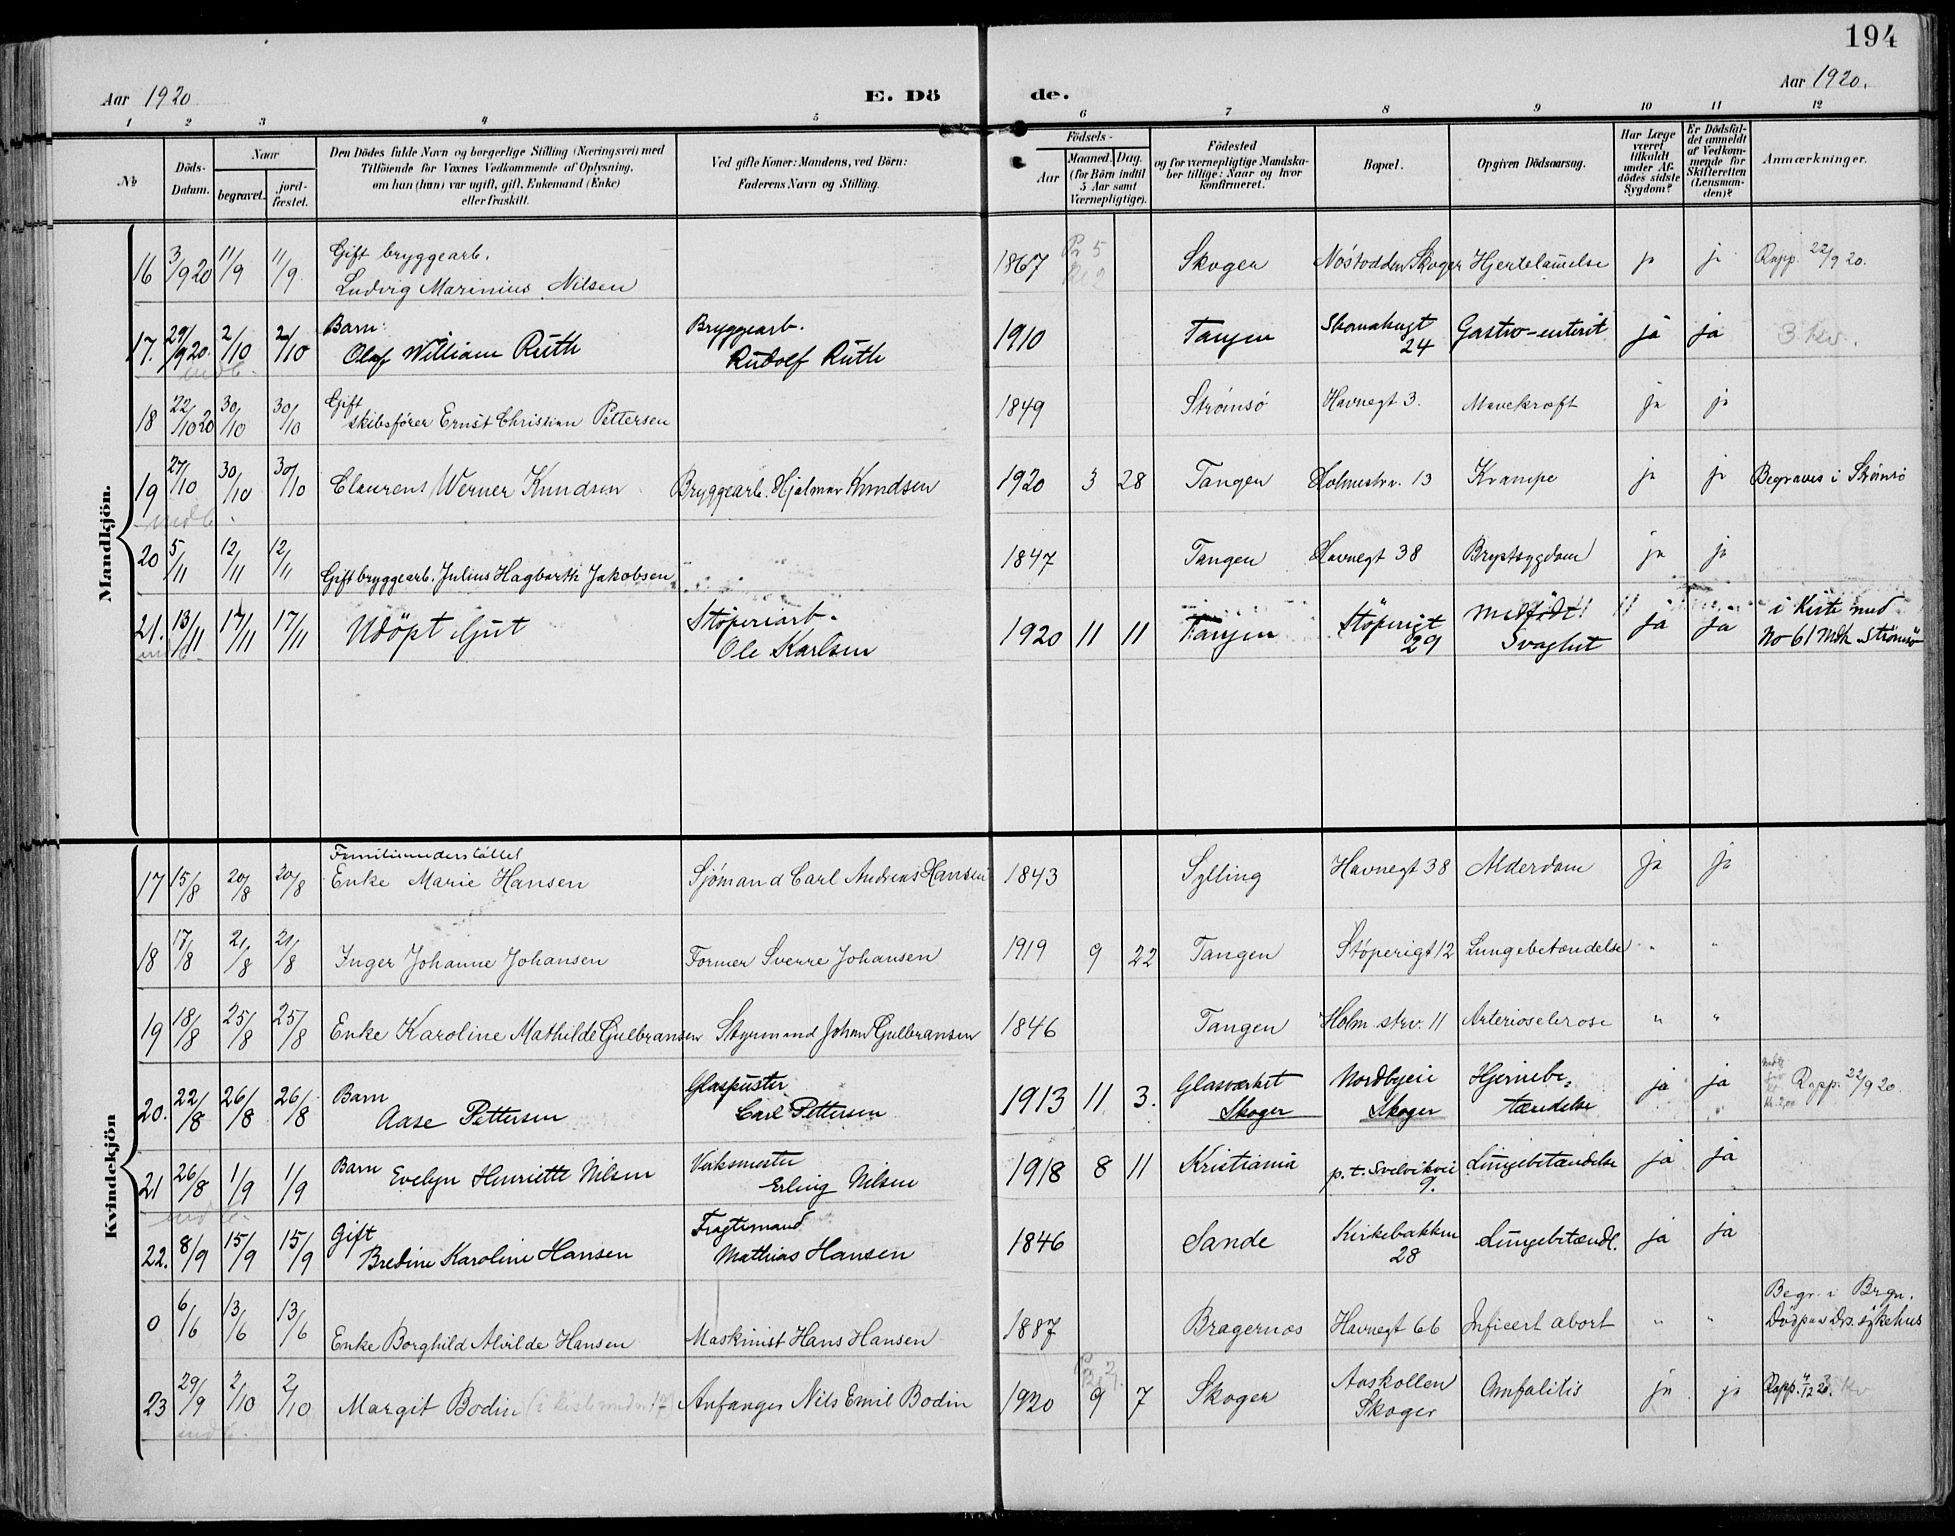 194
Aar 1920
E. Dö de.
Aar 1920.
1 2 3 4 5 6 7 8 9 10 11 12
No
Döds-Datum.
Naar
begravet.
jord-fæstet.
Den Dödes fulde Navn og borgerlige Stilling (Næringsvei) med
Tilföiende for Voxnes Vedkommende af Oplysning,
om han (hun) var ugift, gift, Enkemand (Enke)
eller fraskilt.
Ved gifte Koner: Mandens, ved Börn:
Faderens Navn og Stilling.
Födsels-
Aar
Maaned. Dag.
(for Börn indtil
5 Aar samt
Værnepligtige).
Födested
og for værnepligtige Mandska-
ber tillige: Naar og hvor
konfirmeret.
Bopæl.
Opgiven Dödsaarsag.
Har Læge
været
tilkaldt
under Af-
dödes sidste
Sygdom?
Er Dödsfal-
det anmeldt
af Vedkom-
mende for
Skifteretten
(Lensman-
den)?
Anmærkninger.
Mandkjön.
16 3/9 20 11/9 11/9 Gift bryggearb.
Ludvig Marinius Nilsen 1867 Skoger Nöstodden Skoger Hjertelammelse ja ja Rapp. 22/9 20.
17. 29/9 20. 2/10 2/10 Barn:
Olaf William Ruth Bryggearb.
Rudolf Ruth 1910 Tangen Skomakergt
24 Gastro-enterit ja ja 3 kv.
indb.
18 22/10 20 30/10 30/10 Gift
skibsfører Ernst Christian Pettersen 1849 Strømsö Havnegt 3. Mavekræft ja ja
19 27/10 30/10 30/10 Claurens Werner Knudsen Bryggearb. Hjalmar Knudsen 1920 3 28 Tangen Holmestrv. 13 Krampe ja ja Begraves i Strömsö
indb.
20 5/11 12/11 12/11 Gift bryggearb. Julius Hagbarth Jakobsen 1847 Tangen Havnegt 38 Brystsygdom ja ja
21. 13/11 17/11 17/11 Udöpt Gut Stöperiarb.
Ole Karlsen 1920 11 11 Tangen Stöperigt
29 Medfödt
Svaghet ja ja i Kiste med
No 61 Mdk Strömsö
indb.
Kvindekjön
17 15/8 20/8 20/8 Familieunderstöttet
Enke Marie Hansen Sjömand Carl Andreas Hansen 1843 Sylling Havnegt 38 Alderdom ja ja
18 17/8 21/8 21/8 Inger Johanne Johansen Former Sverre Johansen 1919 9 22 Tangen Stöperigt 12 Lungebetændelse " "
19 18/8 25/8 25/8 Enke Karoline Mathilde Gulbransen Styrmand Johan Gulbransen 1846 Tangen Holm.strv. 11 Arteriosclerose " "
20. 22/8 26/8 26/8 Barn
Aase Pettersen Glaspuster
Carl Pettersen 1913 11 3. Glasværket
Skoger Nordbyeie
Skoger Hjernebe-
tændelse ja ja Rapp. 22/9 20.
21 26/8 1/9 1/9 Barn Evelyn Henriette Nilsen Verksmester
Erling Nilsen 1918 8 11 Kristiania p.t. Svelvikvei
9. Lungebetændelse ja ja
indb.
22. 8/9 15/9 15/9 Gift
Bredine Karoline Hansen Fragtemand
Mathias Hansen 1846 Sande Kirkebakken
28 Lungebetændl. ja ja
0 6/6 13/6 13/6 Enke Borghild Alvilde Hansen Maskinist Hans Hansen 1887 Bragernæs Havnegt 66 Inficert abort " " Begr. i Brgn.
Död paa Drs. sykehus
23 29/9 2/10 2/10 Margit Bodin (i kiste med nr 17) Anfanger Nils Emil Bodin 1920 9 7 Skoger Aaskollen
Skoger Omfalitis ja ja Rapp.
indb.